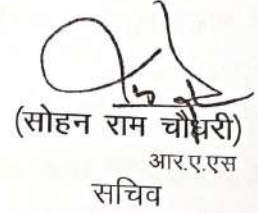 (सोहन राम चौधरी)
आर.ए.एस
सचिव